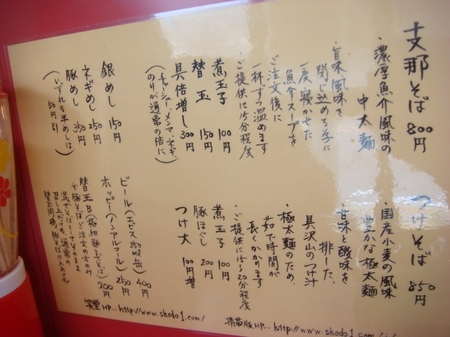 支那そば 800円
・濃厚魚介風味の
中太麺
・旨味風味を
閉じ込める為に
一度寝かせた
魚介スープを
ご注文後に
一杯ずつ温めます
・ご提供に15分程度
煮玉子 100円
替玉 150円
具倍増し 300円
(チャーシュー、メンマ、ネギ、
のりが通常の倍に)
銀めし 150円
ネギめし 250円
豚めし 350円
つけそば 850円
・国産小麦の風味
豊かな極太麺
・甘味と酸味を
排した、
具沢山のつけ汁
・極太麺のため
茹で時間が
長くかかります
・ご提供に15分〜20分程度
煮玉子 100円
豚ほぐし 200円
つけ大 100円増
ビール(エビス350ml缶) 400円
ホッピー(ノンアルコール) 250円
笑堂HP... http://www.shodo1.com/
携帯版HP... http://www.shodo1.com/